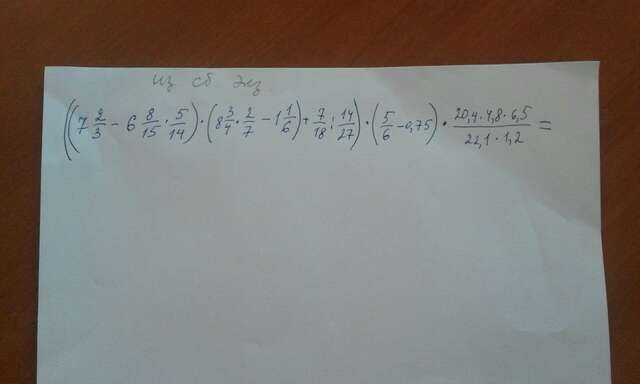 из сб экз
((7 2/3 - 6 8/15 · 5/14) · (8 3/4 · 2/7 - 1 1/6) + 7/18 : 14/27) · (5/6 - 0,75) · (20,4 · 4,8 · 6,5)/(22,1 · 1,2) =